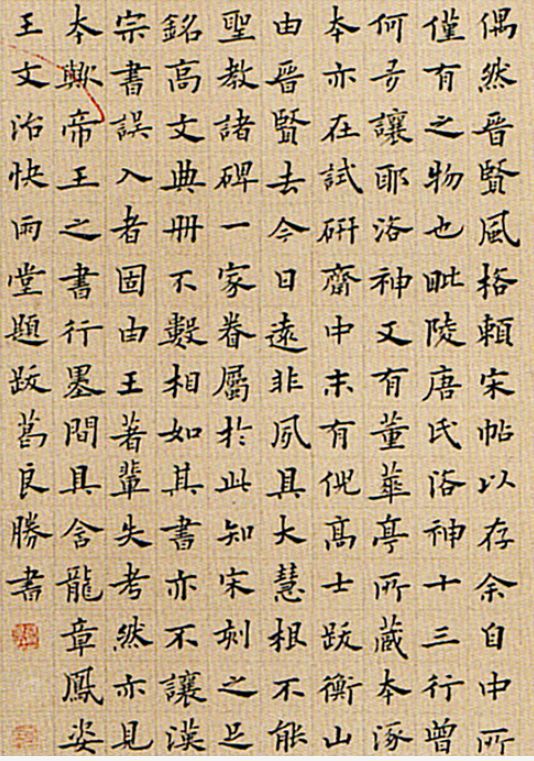 偶然晉賢風格賴宋帖以存余自中所
僅有之物也毗陵唐氏洛神十三行曾
何多讓耶洛神又有董華亭所藏本涿
本亦在試研齋中末有倪高士跋衡山
由晉賢去今日遠非夙具大慧根不能
聖教諸碑一家眷屬於此知宋刻之足
銘高文典冊不數相如其書亦不讓漢
宗書誤入者固由王著輩失考然亦見
本歟帝王之書行墨間具含龍章鳳姿
王文治快雨堂題跋葛良勝書